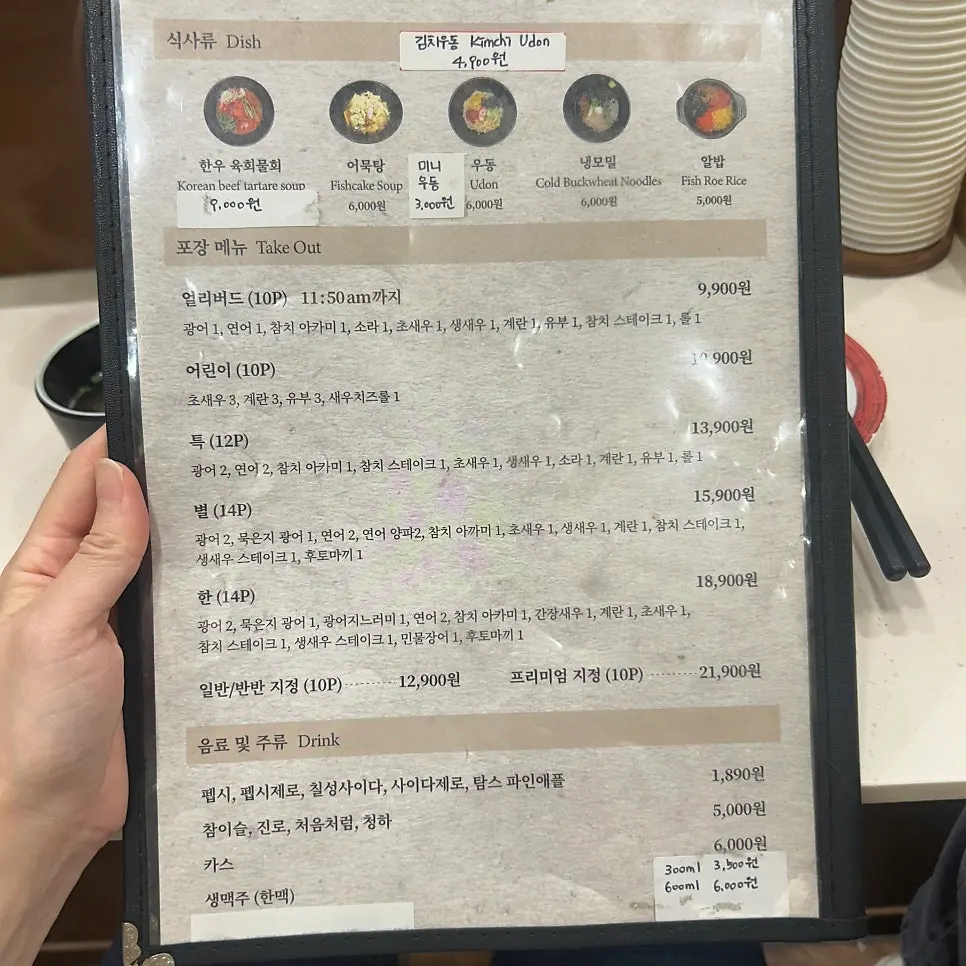 식사류 Dish
김치우동 Kimchi Udon
4,900원
한우 육회물회
Korean beef tartare soup
9,000원
어묵탕
Fishcake Soup
6,000원
미니
우동
3,000원
우동
Udon
6,000원
냉모밀
Cold Buckwheat Noodles
6,000원
알밥
Fish Roe Rice
5,000원
포장 메뉴 Take Out
얼리버드 (10P) 11:50am까지 9,900원
광어 1, 연어 1, 참치 아카미 1, 소라 1, 초새우 1, 생새우 1, 계란 1, 유부 1, 참치 스테이크 1, 롤 1
어린이 (10P)
초새우 3, 계란 3, 유부 3, 새우치즈롤 1
특 (12P) 13,900원
광어 2, 연어 2, 참치 아카미 1, 참치 스테이크 1, 초새우 1, 생새우 1, 소라 1, 계란 1, 유부 1, 롤 1
별 (14P) 15,900원
광어 2, 묵은지 광어 1, 연어 2, 연어 양파2, 참치 아까미 1, 초새우 1, 생새우 1, 계란 1, 참치 스테이크 1,
생새우 스테이크 1, 후토마끼 1
한 (14P) 18,900원
광어 2, 묵은지 광어 1, 광어지느러미 1, 연어 2, 참치 아카미 1, 간장새우 1, 계란 1, 초새우 1,
참치 스테이크 1, 생새우 스테이크 1, 민물장어 1, 후토마끼 1
일반/반반 지정 (10P) 12,900원 프리미엄 지정 (10P) 21,900원
음료 및 주류 Drink
펩시, 펩시제로, 칠성사이다, 사이다제로, 탐스 파인애플 1,890원
참이슬, 진로, 처음처럼, 청하 5,000원
카스 6,000원
생맥주 (한맥)
300ml 3,500원
600ml 6,000원